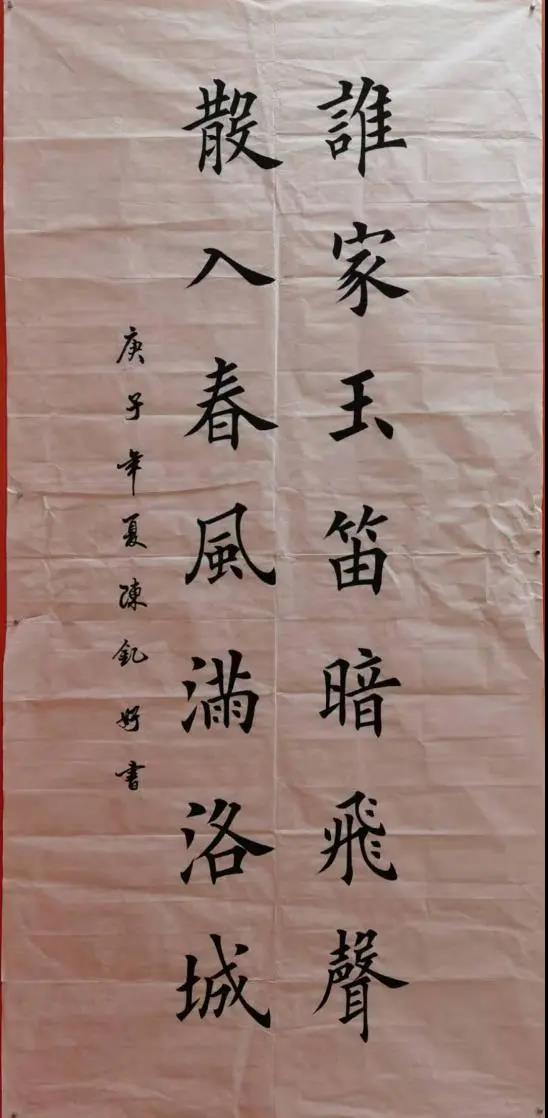 誰家玉笛暗飛聲
散入春風滿洛城
庚子年夏陳釩好書